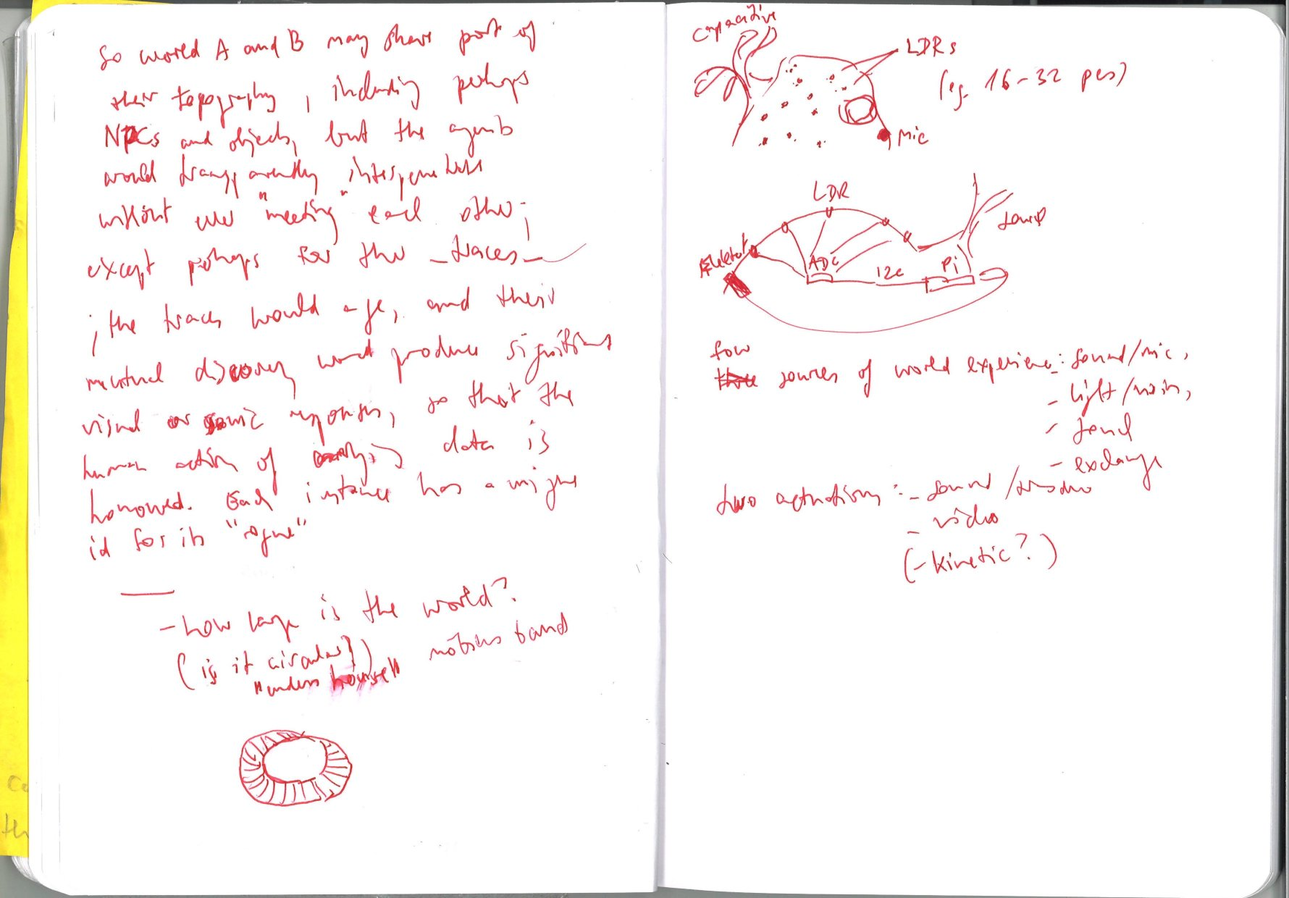 So world A and B may share part of
their topography, including perhaps
NPCs and objects, but the agents
would transparently interpenetrate
without ever "meeting" each other;
except perhaps for the _traces_
; the traces would age, and their
mutual discovery would produce significant
visual or sonic responses, so that the
human action of carrying data is
honoured. Each instance has a unique
id for its "rogue"
- how large is the world?
(is it circular?) möbius band
"unders house"
capacitive
LDRs
(eg. 16-32 pcs)
Mic
LDR
ADC
i2c
Pi
four
sources of world experience: sound/mic,
- light/noise,
- exchange
two actuations: - sound /
- video
(- kinetic?)